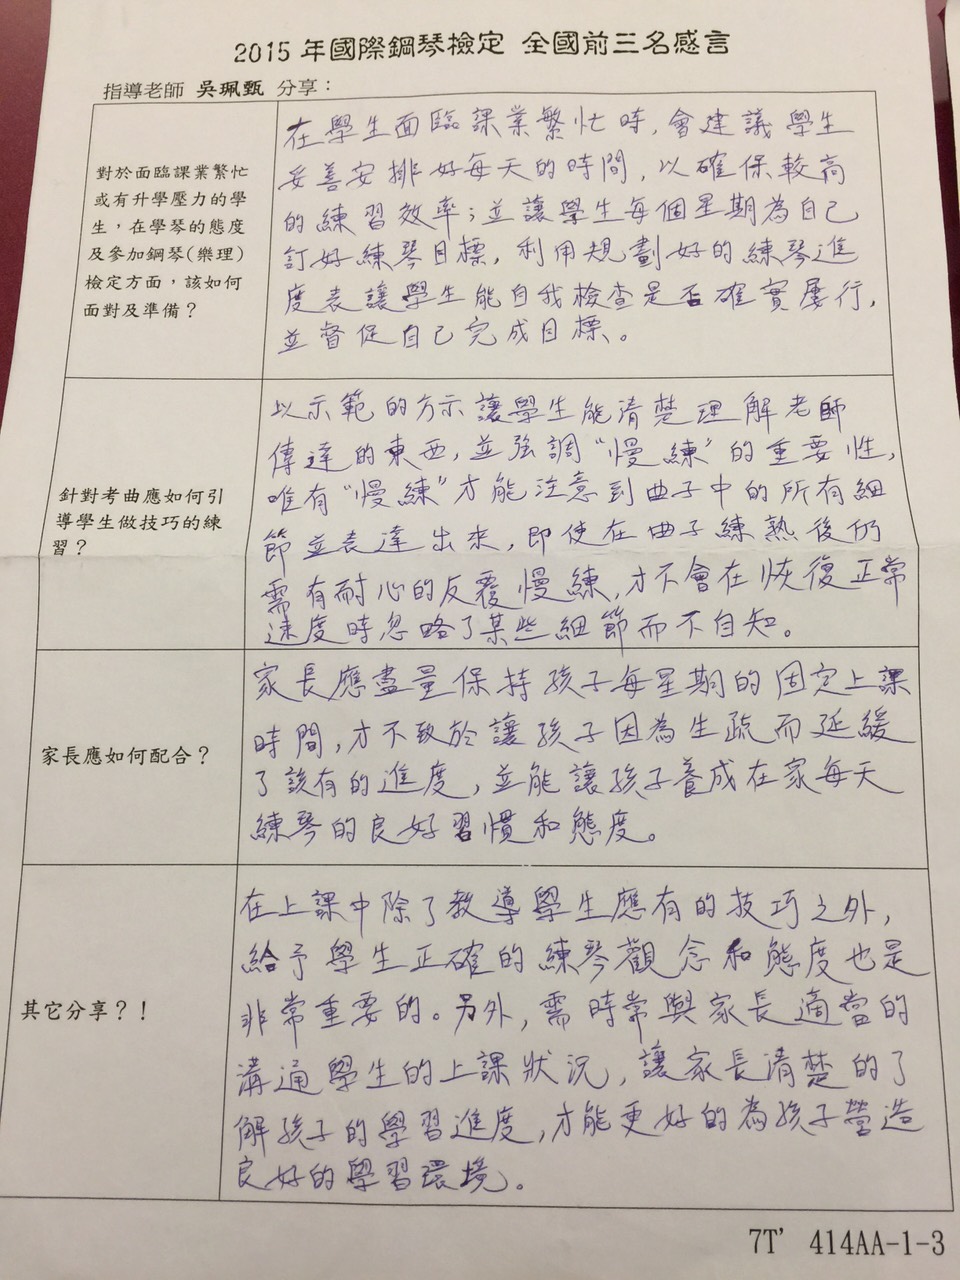 2015 年國際鋼琴檢定 全國前三名感言
指導老師 吳珮甄 分享：
對於面臨課業繁忙
或有升學壓力的學
生，在學琴的態度
及參加鋼琴(樂理)
檢定方面，該如何
面對及準備？
在學生面臨課業繁忙時，會建議學生
妥善安排好每天的時間，以確保較高
的練習效率；並讓學生每個星期為自己
訂好練琴目標，利用規劃好的練琴進
度表讓學生能自我檢查是否確實履行，
並督促自己完成目標。
針對考曲應如何引
導學生做技巧的練
習？
以示範的方示讓學生能清楚理解老師
傳達的東西，並強調“慢練”的重要性，
唯有“慢練”才能注意到曲子中的所有細
節並表達出來，即使在曲子練熟後仍
需有耐心的反覆慢練，才不會在恢復正常
速度時忽略了某些細節而不自知。
家長應如何配合？
家長應盡量保持孩子每星期的固定上課
時間，才不致於讓孩子因為生疏而延緩
了該有的進度，並能讓孩子養成在家每天
練琴的良好習慣和態度。
其它分享？！
在上課中除了教導學生應有的技巧之外，
給予學生正確的練琴觀念和態度也是
非常重要的。另外，需時常與家長適當的
溝通學生的上課狀況，讓家長清楚的了
解孩子的學習進度，才能更好的為孩子營造
良好的學習環境。
7T' 414AA-1-3